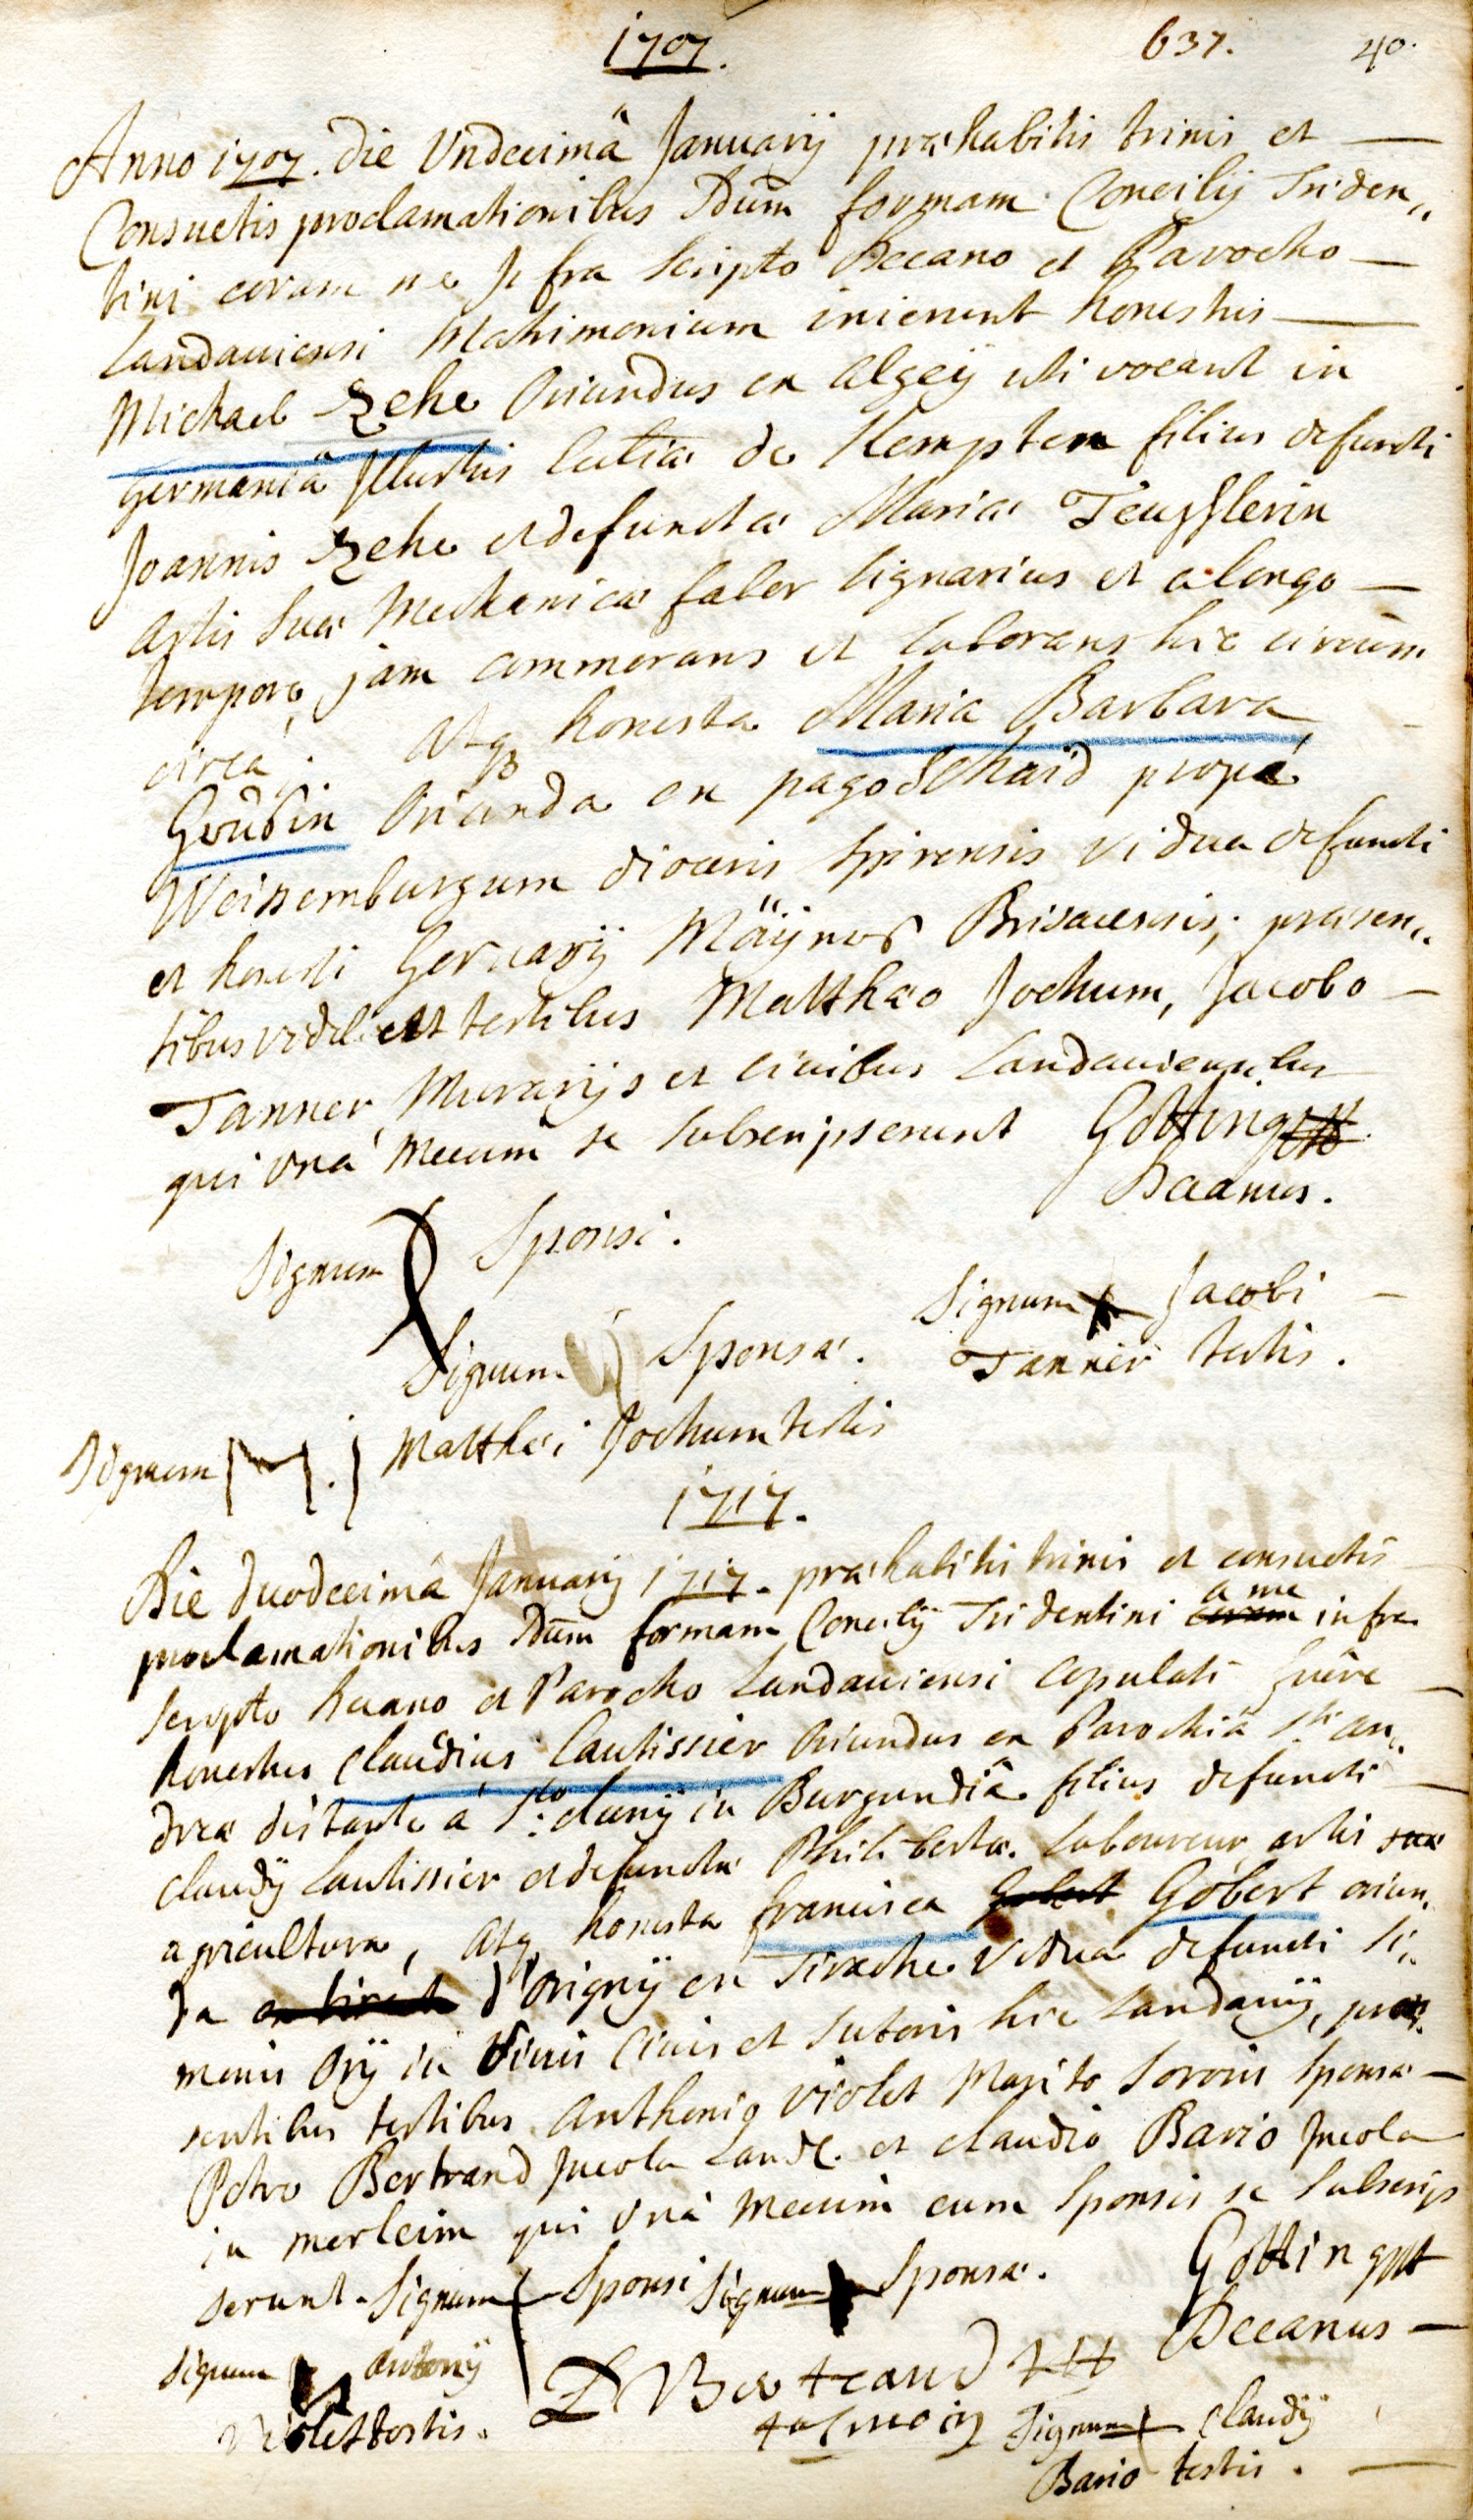 1707.
637. 40.
Anno 1707. Die Undecimâ Januarij præhabitis trinis et
Consuetis proclamationibus sdum formam Concilij Triden„
tini coram me Jnfra scripto Decano et Parocho
Landauiensi Matrimonium inierunt honestus
Michael Zehe Oriundus ex algeij uti vocant in
Germaniâ de Kempten filius defuncti
Joannis Zehe et defunctæ Mariæ Teufflerin
artis suæ Mechanicæ faber lignarius et a longo
tempore jam commorans et laborans hic circum
circa. Atq honesta Maria Barbara
Oriunda ex pago Schaid propé
Weissemburgum diocæsis Spirensis vidua defuncti
et honesti Brisacensis; præsen„
tibus testibus Matthæo Jochum, Jacobo
Tanner, Murarijs et ciuibus Landauiensibus
qui unà Mecum se subscripserunt
Decanus.
Signum Sponsi.
Signum Jacobi
Signum Sponsæ.
Tanner testis.
Signum M. J Matthæi Jochum testis
1717.
Die duodecimâ Januarij 1717. præhabitis trinis et consuetis
proclamationibus sdum formam Concilij Tridentini a me infra
scripto Decano et Parocho Landauiensi copulati fuêre
honestus Claudius Lautissier Oriundus ex Parochiâ Sti an„
dreæ distante á Sto. Clunij in Burgundiâ filius defuncti
Claudij Lautissier et defunctæ Philibertæ Laboureur artis suæ
agricultura, Atq honesta francisca Gobert oriun„
da d'Origny en Tirache Vidua defuncti Si„
monis Ciuis et sutoris hic Landauij, præ„
sentibus testibus Anthonio Violet Marito Sororis Sponsæ
Petro Bertrand Jncola Land. et Claudio Bario Jncola
in merleim qui unà Mecum cum Sponsis se subscrips
erunt. Signum Sponsi Signum Sponsæ.
Decanus
Signum Antony
Violet testis.
P Bertrand
temoin Signum Claudij
Bario testis.